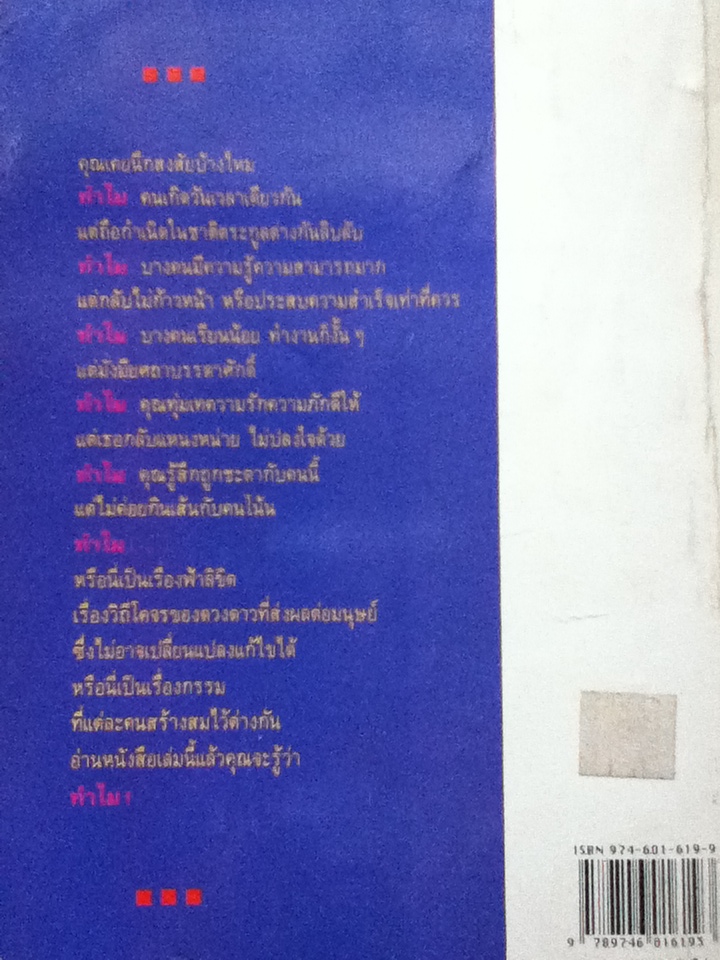 คุณเคยนึกสงสัยบ้างไหม
ทำไม คนเกิดวันเวลาเดียวกัน
แต่ถือกำเนิดในชาติตระกูลต่างกันลิบลับ
ทำไม บางคนมีความรู้ความสามารถมาก
แต่กลับไม่ก้าวหน้า หรือประสบความสำเร็จเท่าที่ควร
ทำไม บางคนเรียนน้อย ทำงานก็งั้น ๆ
แต่มั่งมียศถาบรรดาศักดิ์
ทำไม คุณทุ่มเทความรักความภักดีให้
แต่เธอกลับแหนงหน่าย ไม่ปลงใจด้วย
ทำไม คุณรู้สึกถูกชะตากับคนนี้
แต่ไม่ค่อยกินเส้นกับคนโน้น
ทำไม
หรือนี่เป็นเรื่องฟ้าลิขิต
เรื่องวิถีโคจรของดวงดาวที่ส่งผลต่อมนุษย์
ซึ่งไม่อาจเปลี่ยนแปลงแก้ไขได้
หรือนี่เป็นเรื่องกรรม
ที่แต่ละคนสร้างสมไว้ต่างกัน
อ่านหนังสือเล่มนี้แล้วคุณจะรู้ว่า
ทำไม !
ISBN 974-601-619-9
9 789746 016193